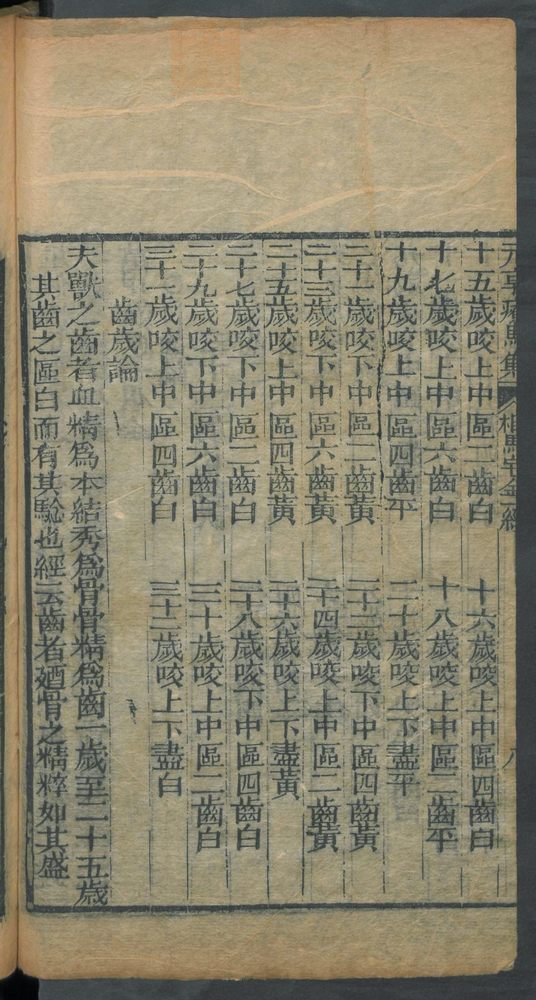 元亨療馬集 相馬寶金經 八
十五歲咬上中區二齒白 十六歲咬上中區四齒白
十七歲咬上中區六齒白 十八歲咬上中區二齒平
十九歲咬上中區四齒平 二十歲咬上下盡平
二十一歲咬下中區二齒黃 二十二歲咬下中區四齒黃
二十三歲咬下中區六齒黃 二十四歲咬上中區二齒黃
二十五歲咬上中區四齒黃 二十六歲咬上下盡黃
二十七歲咬下中區二齒白 二十八歲咬下中區四齒白
二十九歲咬下中區六齒白 三十歲咬上中區二齒白
三十一歲咬上中區四齒白 三十二歲咬上下盡白
齒歲論
夫獸之齒者血精爲本結秀爲骨骨精爲齒一歲至三十五歲
其齒之區白而有其騐也經云齒者廼骨之精粹如其盛